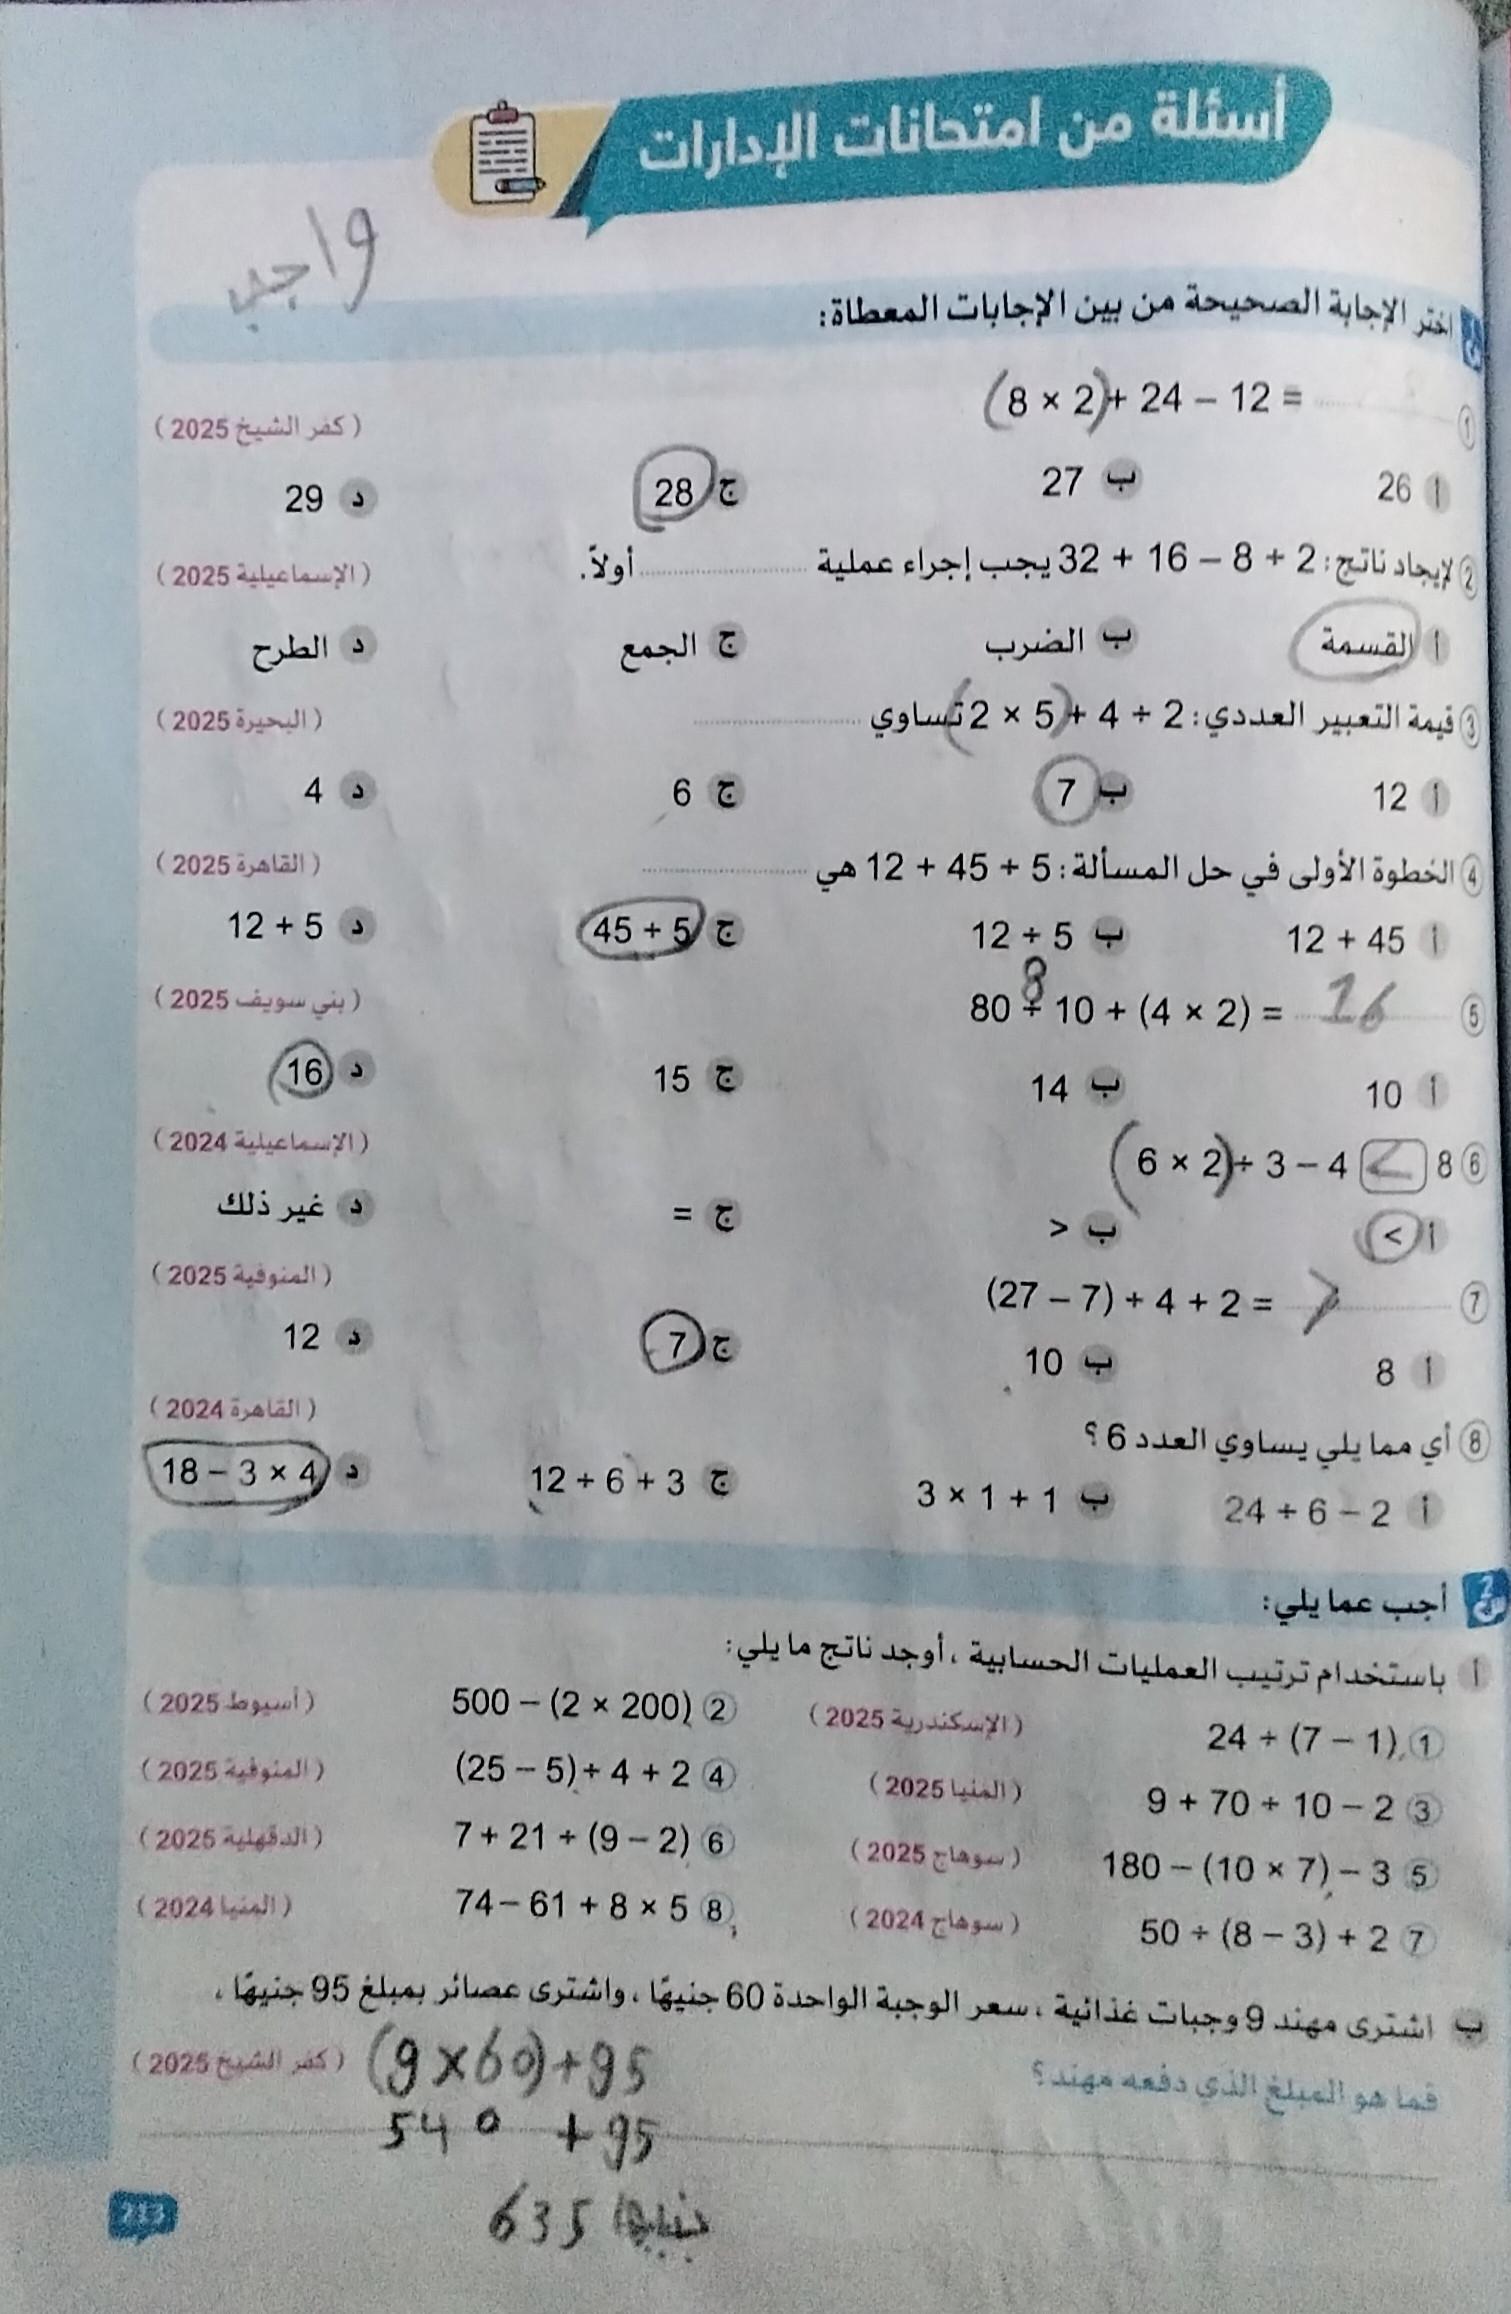 أسئلة من امتحانات الإدارات
واجب
اختر الإجابة الصحيحة من بين الإجابات المعطاة:
① (8 × 2) + 24 – 12 = ( كفر الشيخ 2025 )
أ 26 ب 27 ج 28 د 29
② لإيجاد ناتج: 2 ÷ 8 – 16 + 32 يجب إجراء عملية أولاً. ( الإسماعيلية 2025 )
أ القسمة ب الضرب ج الجمع د الطرح
③ قيمة التعبير العددي: 2 ÷ 4 + (5 × 2) تساوي ( البحيرة 2025 )
أ 12 ب 7 ج 6 د 4
④ الخطوة الأولى في حل المسألة: 5 ÷ 45 + 12 هي ( القاهرة 2025 )
أ 12 + 45 ب 12 ÷ 5 ج 45 ÷ 5 د 12 + 5
8
⑤ 80 ÷ 10 + (4 × 2) = 16 ( بني سويف 2025 )
أ 10 ب 14 ج 15 د 16
⑥ (6 × 2) ÷ 3 – 4 < 8 ( الإسماعيلية 2024 )
أ < ب > ج = د غير ذلك
⑦ (27 – 7) ÷ 4 + 2 = 7 ( المنوفية 2025 )
أ 8 ب 10 ج 7 د 12
⑧ أي مما يلي يساوي العدد 6 ؟ ( القاهرة 2024 )
أ 24 ÷ 6 – 2 ب 3 × 1 + 1 ج 12 ÷ 6 + 3 د 18 – 3 × 4
2 أجب عما يلي:
أ باستخدام ترتيب العمليات الحسابية ، أوجد ناتج ما يلي:
① 24 ÷ (7 – 1) ( الإسكندرية 2025 ) ② 500 – (2 × 200) ( أسيوط 2025 )
③ 9 + 70 ÷ 10 – 2 ( المنيا 2025 ) ④ (25 – 5) ÷ 4 + 2 ( المنوفية 2025 )
⑤ 180 – (10 × 7) – 3 ( سوهاج 2025 ) ⑥ 7 + 21 ÷ (9 – 2) ( الدقهلية 2025 )
⑦ 50 ÷ (8 – 3) + 2 ( سوهاج 2024 ) ⑧ 74 – 61 + 8 × 5 ( المنيا 2024 )
ب اشترى مهند 9 وجبات غذائية ، سعر الوجبة الواحدة 60 جنيهًا ، واشترى عصائر بمبلغ 95 جنيهًا ،
فما هو المبلغ الذي دفعه مهند؟ ( كفر الشيخ 2025 )
(9 × 60) + 95
540 + 95
635 جنيها
213